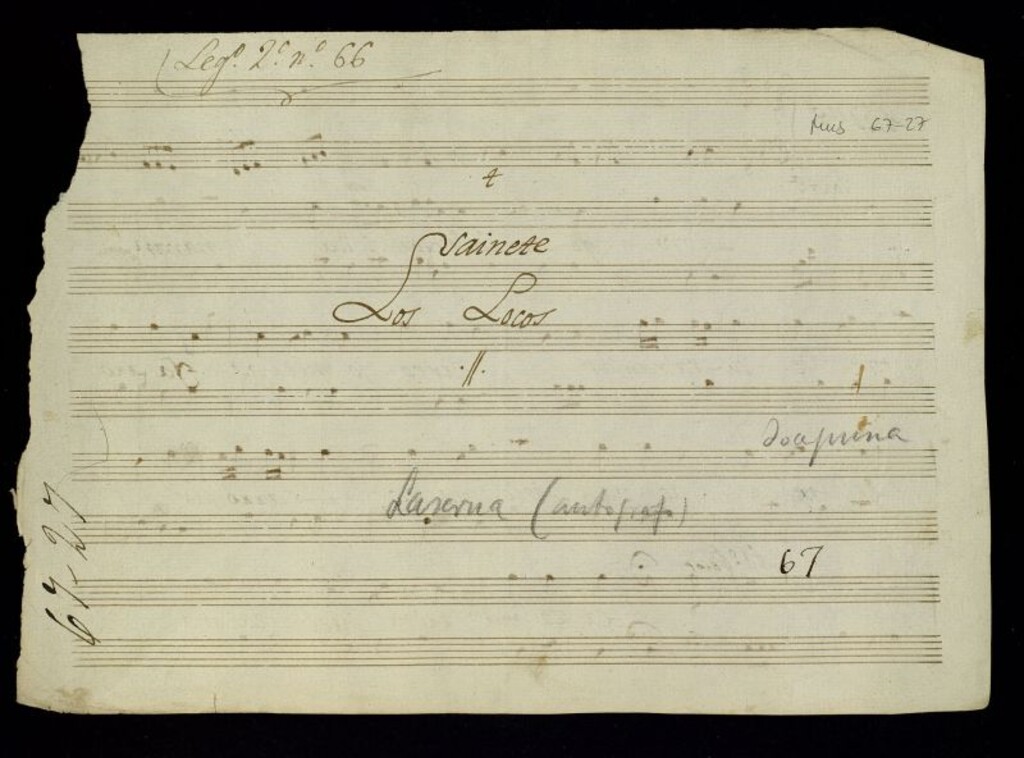 Legº. 2º. nº. 66
Mus 67-27
4
Sainete
Los Locos
.//.
Laserna (autografo)
67
67-27